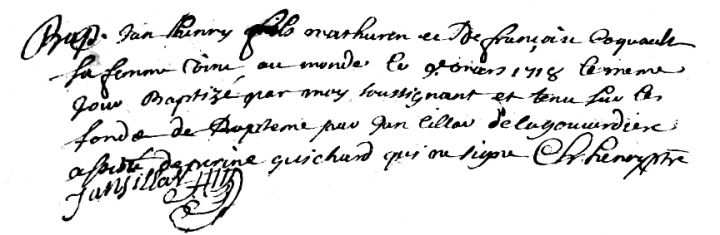 Bap. Jan Henry fils mathurin et De françoise Coquault
sa femme vint au monde le 9e mars 1718 le meme
Jour Baptizé par moy soussignant et tenu sur les
fonds de Bapteme par Jan lillar de la gouuerdiere
assisté de perine guichard qui ne signe Ch. henry ptre
Jan lillar